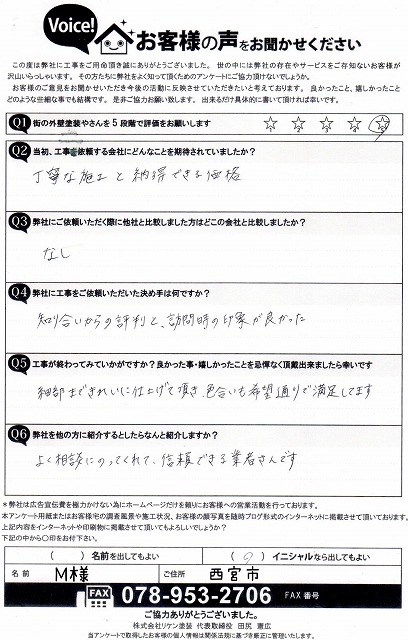 Voice!
お客様の声をお聞かせください
この度は弊社に工事をご用命頂き誠にありがとうございました。世の中には弊社の存在やサービスをご存知ないお客様が
沢山いらっしゃいます。その方たちに弊社をよく知って頂くためのアンケートにご協力頂けないでしょうか。
お客様のご意見をお聞かせいただき今後の活動に反映させていただきたいと考えております。良かったこと、嬉しかったこと
どのような些細な事でも結構です。是非ご協力お願い致します。出来るだけ具体的に書いて頂ければ幸いです。
Q1 街の外壁塗装やさんを5段階で評価をお願いします ☆ ☆ ☆ ☆ ☆
Q2 当初、工事を依頼する会社にどんなことを期待されていましたか?
丁寧な施工と納得できる価格
Q3 弊社にご依頼いただく際に他社と比較しました方はどこの会社と比較しましたか?
なし
Q4 弊社に工事をご依頼いただいた決め手は何ですか?
知り合いからの評判と、訪問時の印象が良かった
Q5 工事が終わってみていかがですか?良かった事・嬉しかったことを忌憚なく頂戴出来ましたら幸いです
細部まできれいに仕上げて頂き、色合いも希望通りで満足してます
Q6 弊社を他の方に紹介するとしたらなんと紹介しますか?
よく相談にのってくれて、信頼できる業者さんです
*弊社は広告宣伝費を極力かけない為にホームページだけを頼りにお客様への営業活動を行っております。
本アンケート用紙またはお客様宅の調査風景や施工状況、お客様の顔写真を随時ブログ形式のインターネットに掲載させて頂いております。
上記内容をインターネットや印刷物に掲載させて頂いてもよろしいでしょうか?
下記の中から○印をお付け下さい。
( ) 名前を出してもよい ( ○ ) イニシャルなら出してもよい
名前 M様 ご住所 西宮市
FAX 078-953-2706 FAX番号
ご協力ありがとうございました。
株式会社リケン塗装 代表取締役 田尻 憲広
当アンケートで取得したお客様の個人情報は関係法規に基づき厳正に管理いたします。